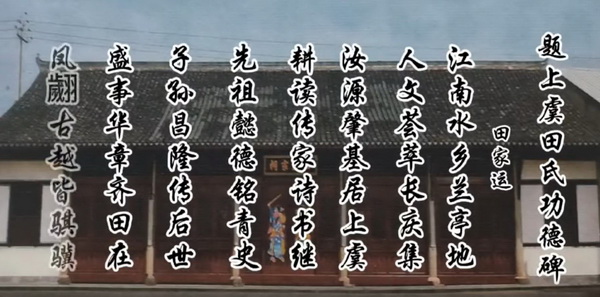 题上虞田氏功德碑
田家运
江南水乡兰亭地
人文荟萃长庆集
汝源肇基居上虞
耕读传家诗书继
先祖懿德铭青史
子孙昌隆传后世
盛事华章齐田在
凤翽古越皆骐骥